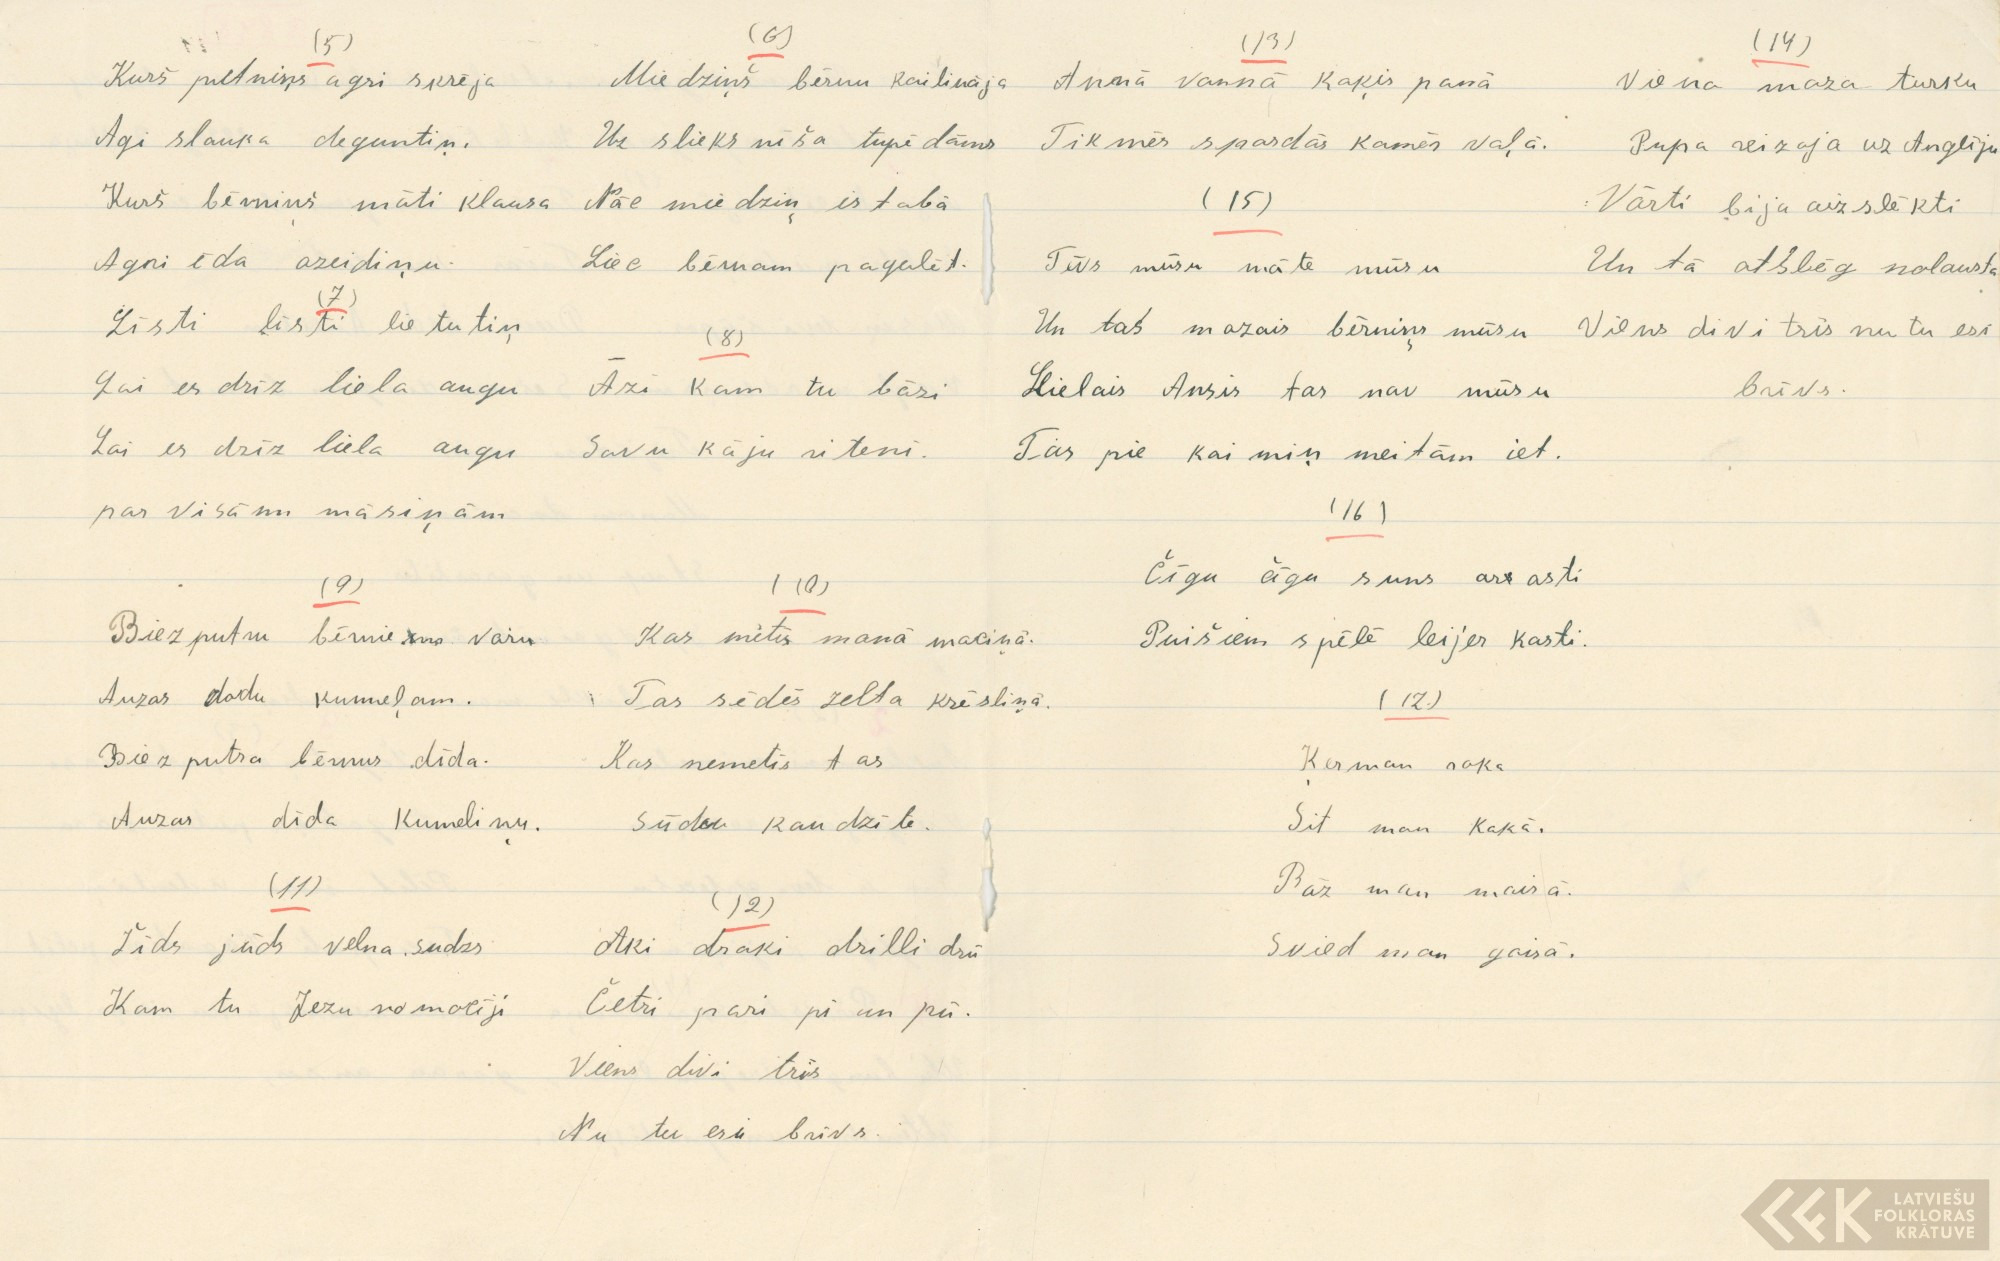 (5)
Kurš putniņs agri skrēja
Agi slauka deguntiņ.
Kurš bērniņš māti klausa
Agri ēda azeidiņu.
(7)
Līsti līsti lietutiņ
Lai es drīz liela augu
Lai es drīz liela augu
par visām māsiņām
(9)
Biezputru bērniem varu
Auzas dodu kumeļam.
Biezputra bērnus dīda.
Auzas dīda Kumeliņu.
(11)
Žīds jūds velna sudzs
Kam tu Jezu nomocīji
(6)
Miedziņš bērnu kaitināja
Uz slieksnīša tupēdāms
Nāc miedziņ istabā
Liec bērnam pagulēt.
(8)
Āzi kam tu bāzi
Savu kāju riteni.
(10)
Kas metīs manā maciņā.
Tas sēdēs zelta krēsliņā.
Kas nemetīs tas
Sūdu kaudzītē.
(12)
Aki draki drilli drū
Četri pari pi un pū.
Viens divi trīs
Nu tu esi brīvs.
(13)
Annā vannā kaķis panā
Tikmēs spardās kamēs vaļā.
(15)
Tēvs mūsu māte mūsu
Un tas mazais bērniņs mūsu
Lielais Ansis tas nav mūsu
Tas pie kaimiņ meitām iet.
(16)
Čīgu čīgu suns ar asti
Puišiem spēlē leijerkasti.
(12)
Ķer man roka
Sit man kakā.
Bāz man maisā.
Svied man gaisā.
(14)
Viena maza turku
Pupa reizoja uz Angliju
Vārti bija aizslēkti
Un tā atslēg nolausta
Viens divi trīs nu tu esi
brīvs.
LATVIEŠU
FOLKLORAS
KRĀTUVE